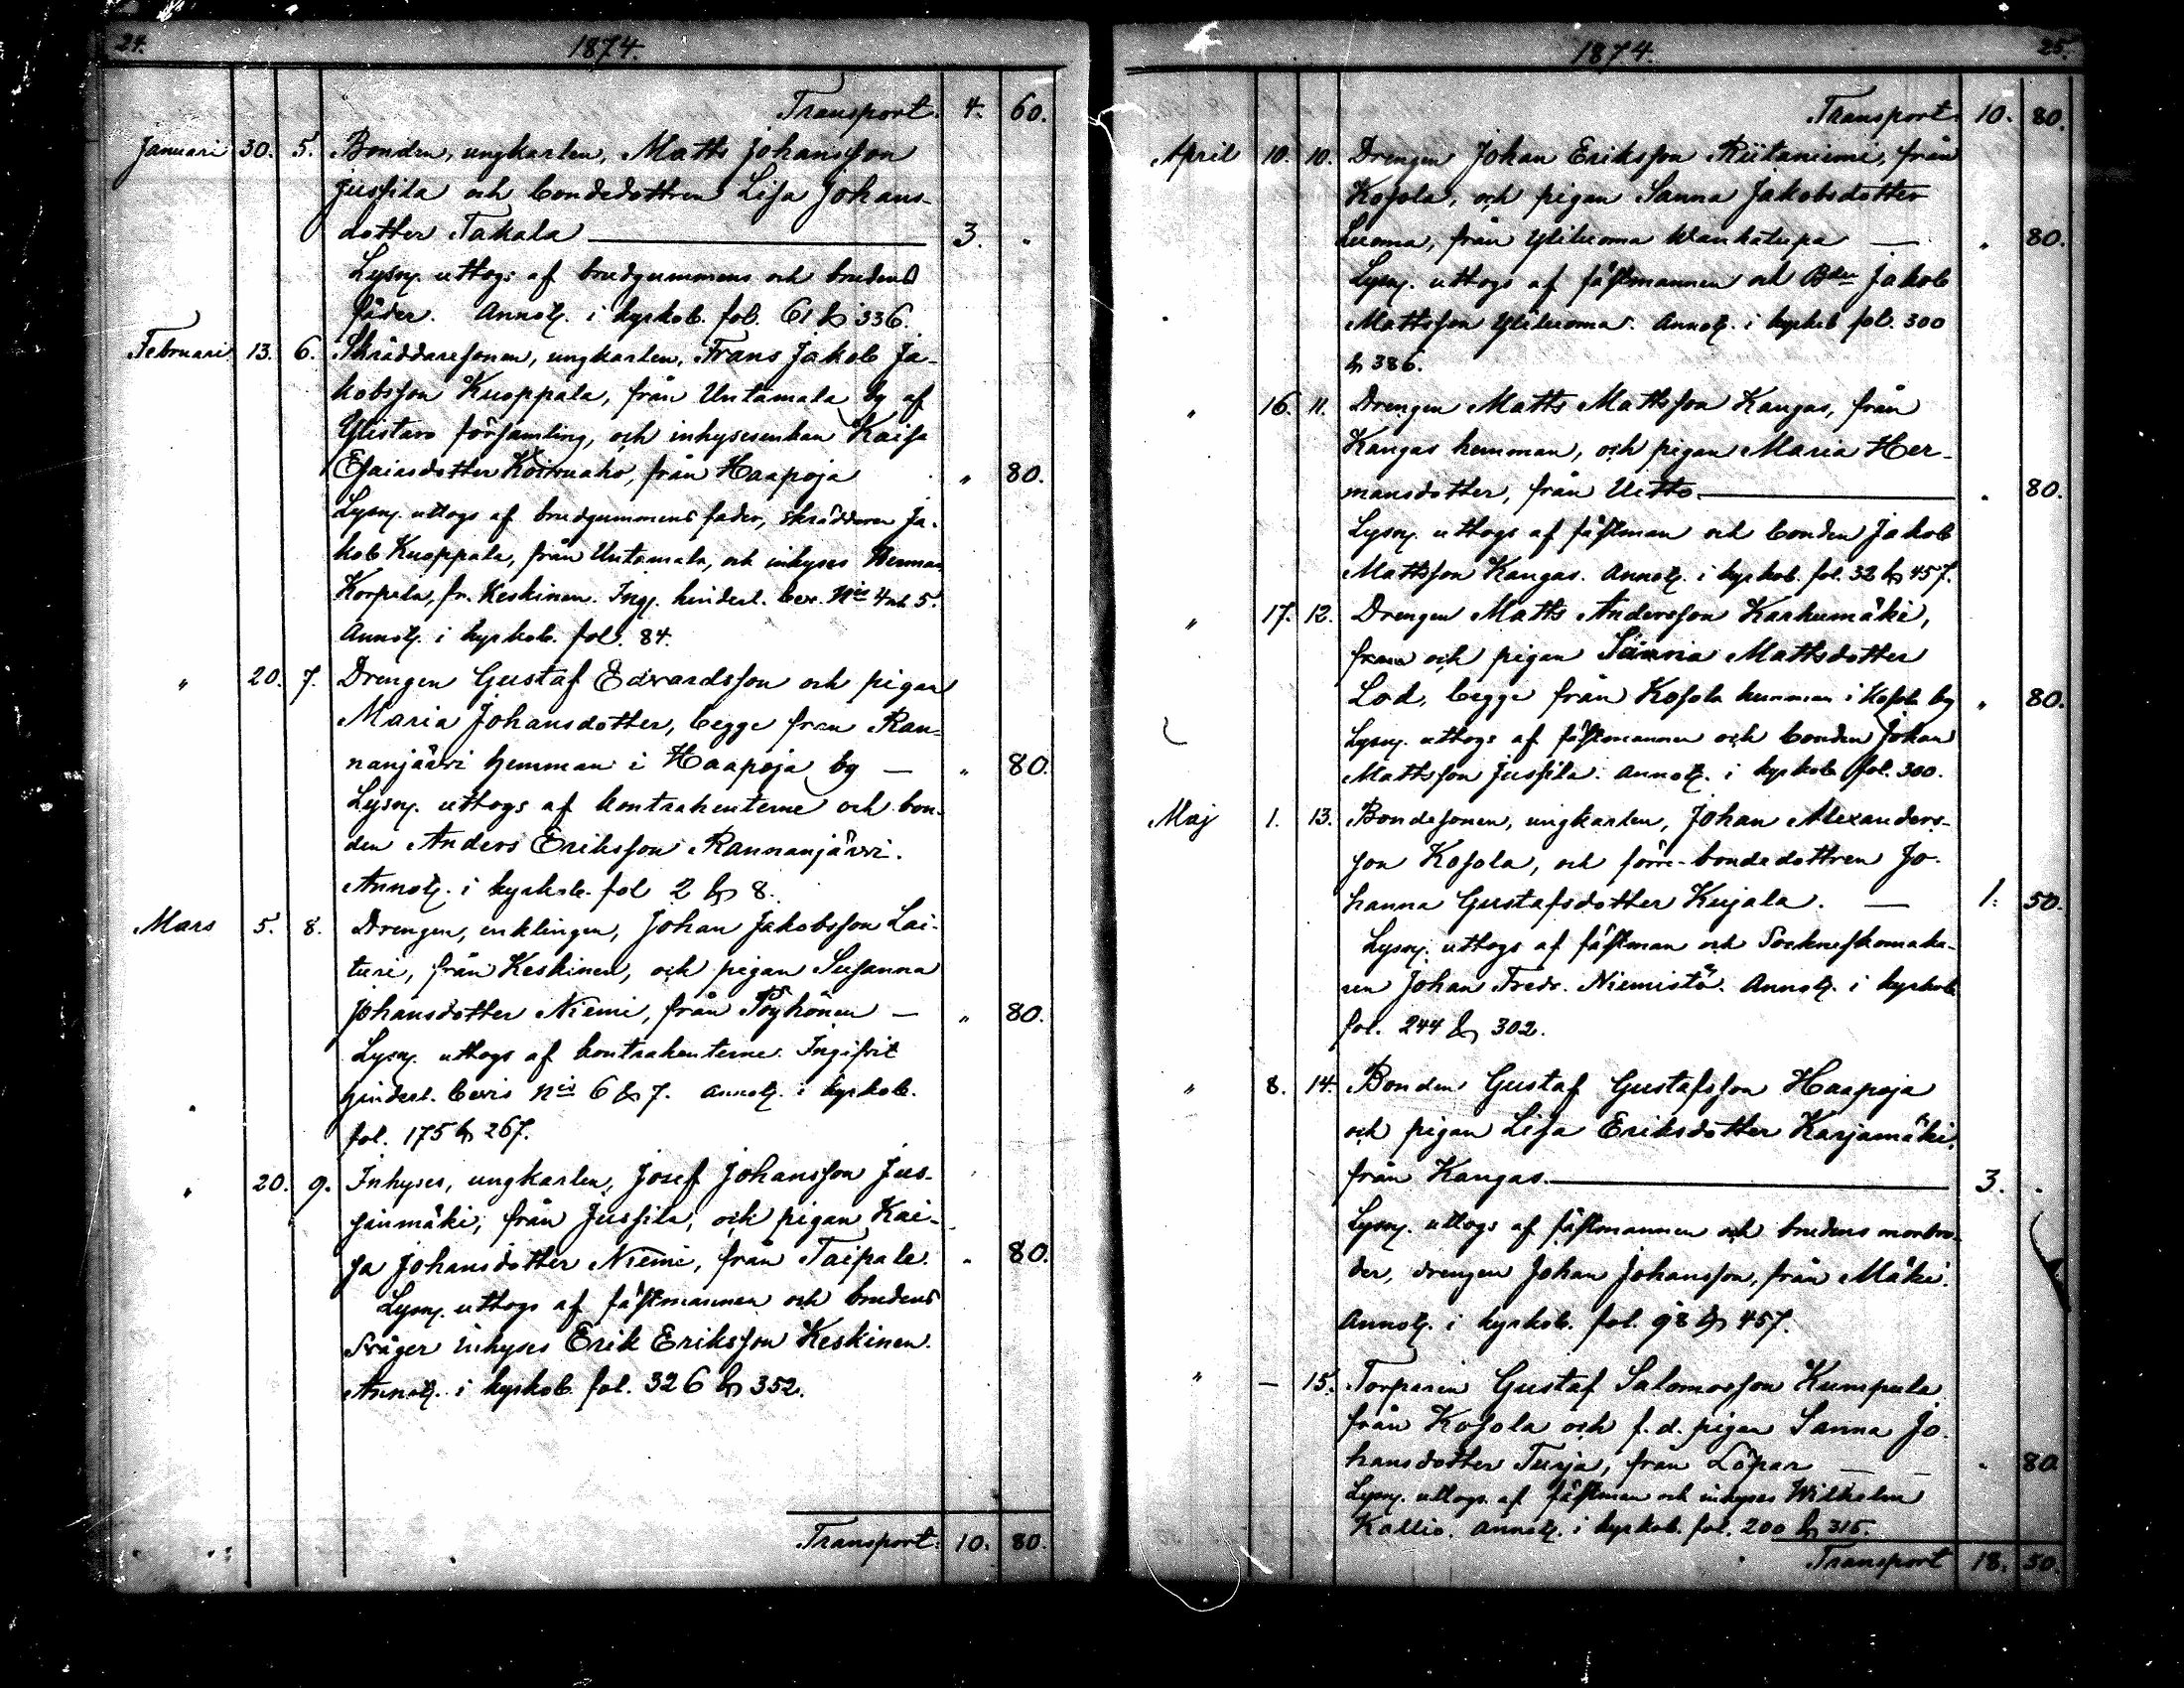 24. 1874.
Transport. 4. 60.
Januari 30. 5. Bonden, ungkarlen, Matts Johansson
Jussila och bondedottren Lisa Johans-
dotter Takala — 3. "
Lysng. uttogs af brudgummens och brudens
fäder. Annotg. i kyrkob. fol. 61 & 336.
Februari 13. 6. Skräddaresonen, ungkarlen, Frans Jakob Ja-
kobsson Kuoppala, från Untamala by af
Ylistaro församling, och inhysesenkan Kaisa
Esaiasdotter Koivuaho, från Haapoja " 80.
Lysng. uttogs af brudgummens fader, skräddaren Ja-
kob Kuoppala, från Untamala, och inhyses Herman
Korpela, fr. Keskinen. Ingg. hinderl. bev. Nis 4 och 5.
Annotg. i kyrkob. fol. 84.
" 20. 7. Drengen Gustaf Edvardsson och pigan
Maria Johansdotter, begge från Ran-
nanjärvi hemman i Haapoja by — " 80.
Lysng. uttogs af kontrahenterne och bon-
den Anders Eriksson Rannanjärvi.
Annotg. i kyrkob. fol 2 & 8.
Mars 5. 8. Drengen, enklingen, Johan Jakobsson Lai-
turi, från Keskinen, och pigan Susanna
Johansdotter Niemi, från Pöyhönen — " 80.
Lysng. uttogs af kontrahenterne. Ingifvit
hinderl. bevis Nis 6 & 7. Annotg. i kyrkob.
fol. 175 & 267.
" 20. 9. Inhyses, ungkarlen, Josef Johansson Jus-
sinmäki, från Jussila, och pigan Kai-
sa Johansdotter Niemi, från Taipale. " 80.
Lysng. uttogs af fästmannen och brudens
svåger inhyses Erik Eriksson Keskinen.
Annotg. i kyrkob. fol. 326 & 352.
Transport. 10. 80.
1874. 25.
Transport. 10. 80.
April 10. 10. Drengen Johan Eriksson Riitaniemi, från
Kosola, och pigan Sanna Jakobsdotter
Luoma, från Ylikuoma Wankatupa — " 80.
Lysng. uttogs af fästmannen och Bden Jakob
Mattsson Yliluoma. Annotg. i kyrkob fol. 300
& 386.
" 16. 11. Drengen Matts Mattsson Kangas, från
Kangas hemman, och pigan Maria Her-
mansdotter, från Uitto. — " 80.
Lysng. uttogs af fästman och bonden Jakob
Mattsson Kangas. Annotg. i kyrkob. fol. 32 & 457.
" 17. 12. Drengen Matts Andersson Karhumäki,
från och pigan Sanna Mattsdotter
Lod, begge från Kosola hemman i Kosola by " 80.
Lysng. uttogs af fästmannen och bonden Johan
Mattsson Jussila. Annotg. i kyrkob fol. 300.
Maj 1. 13. Bondesonen, ungkarlen, Johan Alexanders-
son Kosola, och förre-bondedottren Jo-
hanna Gustafsdotter Kujala. — 1. 50.
Lysng. uttogs af fästman och Sockneskomaka-
ren Johan Fredr. Niemistö. Annotg. i kyrkob
fol. 244 & 302.
" 8. 14. Bonden Gustaf Gustafsson Haapoja
och pigan Lisa Eriksdotter Karjamäki,
från Kangas. — 3. "
Lysng. uttogs af fästmannen och brudens morbro-
der, drengen Johan Johansson, från Mäki.
Annotg. i kyrkob. fol. 98 & 457.
" — 15. Torparen Gustaf Salomosson Kumpula
från Kosola och f.d. pigan Sanna Jo-
hansdotter Turja, från Löpar — " 80
Lysng. uttogs af fästman och inhyses Wilhelm
Kallio. Annotg. i kyrkob. fol. 200 & 315.
Transport 18. 50.